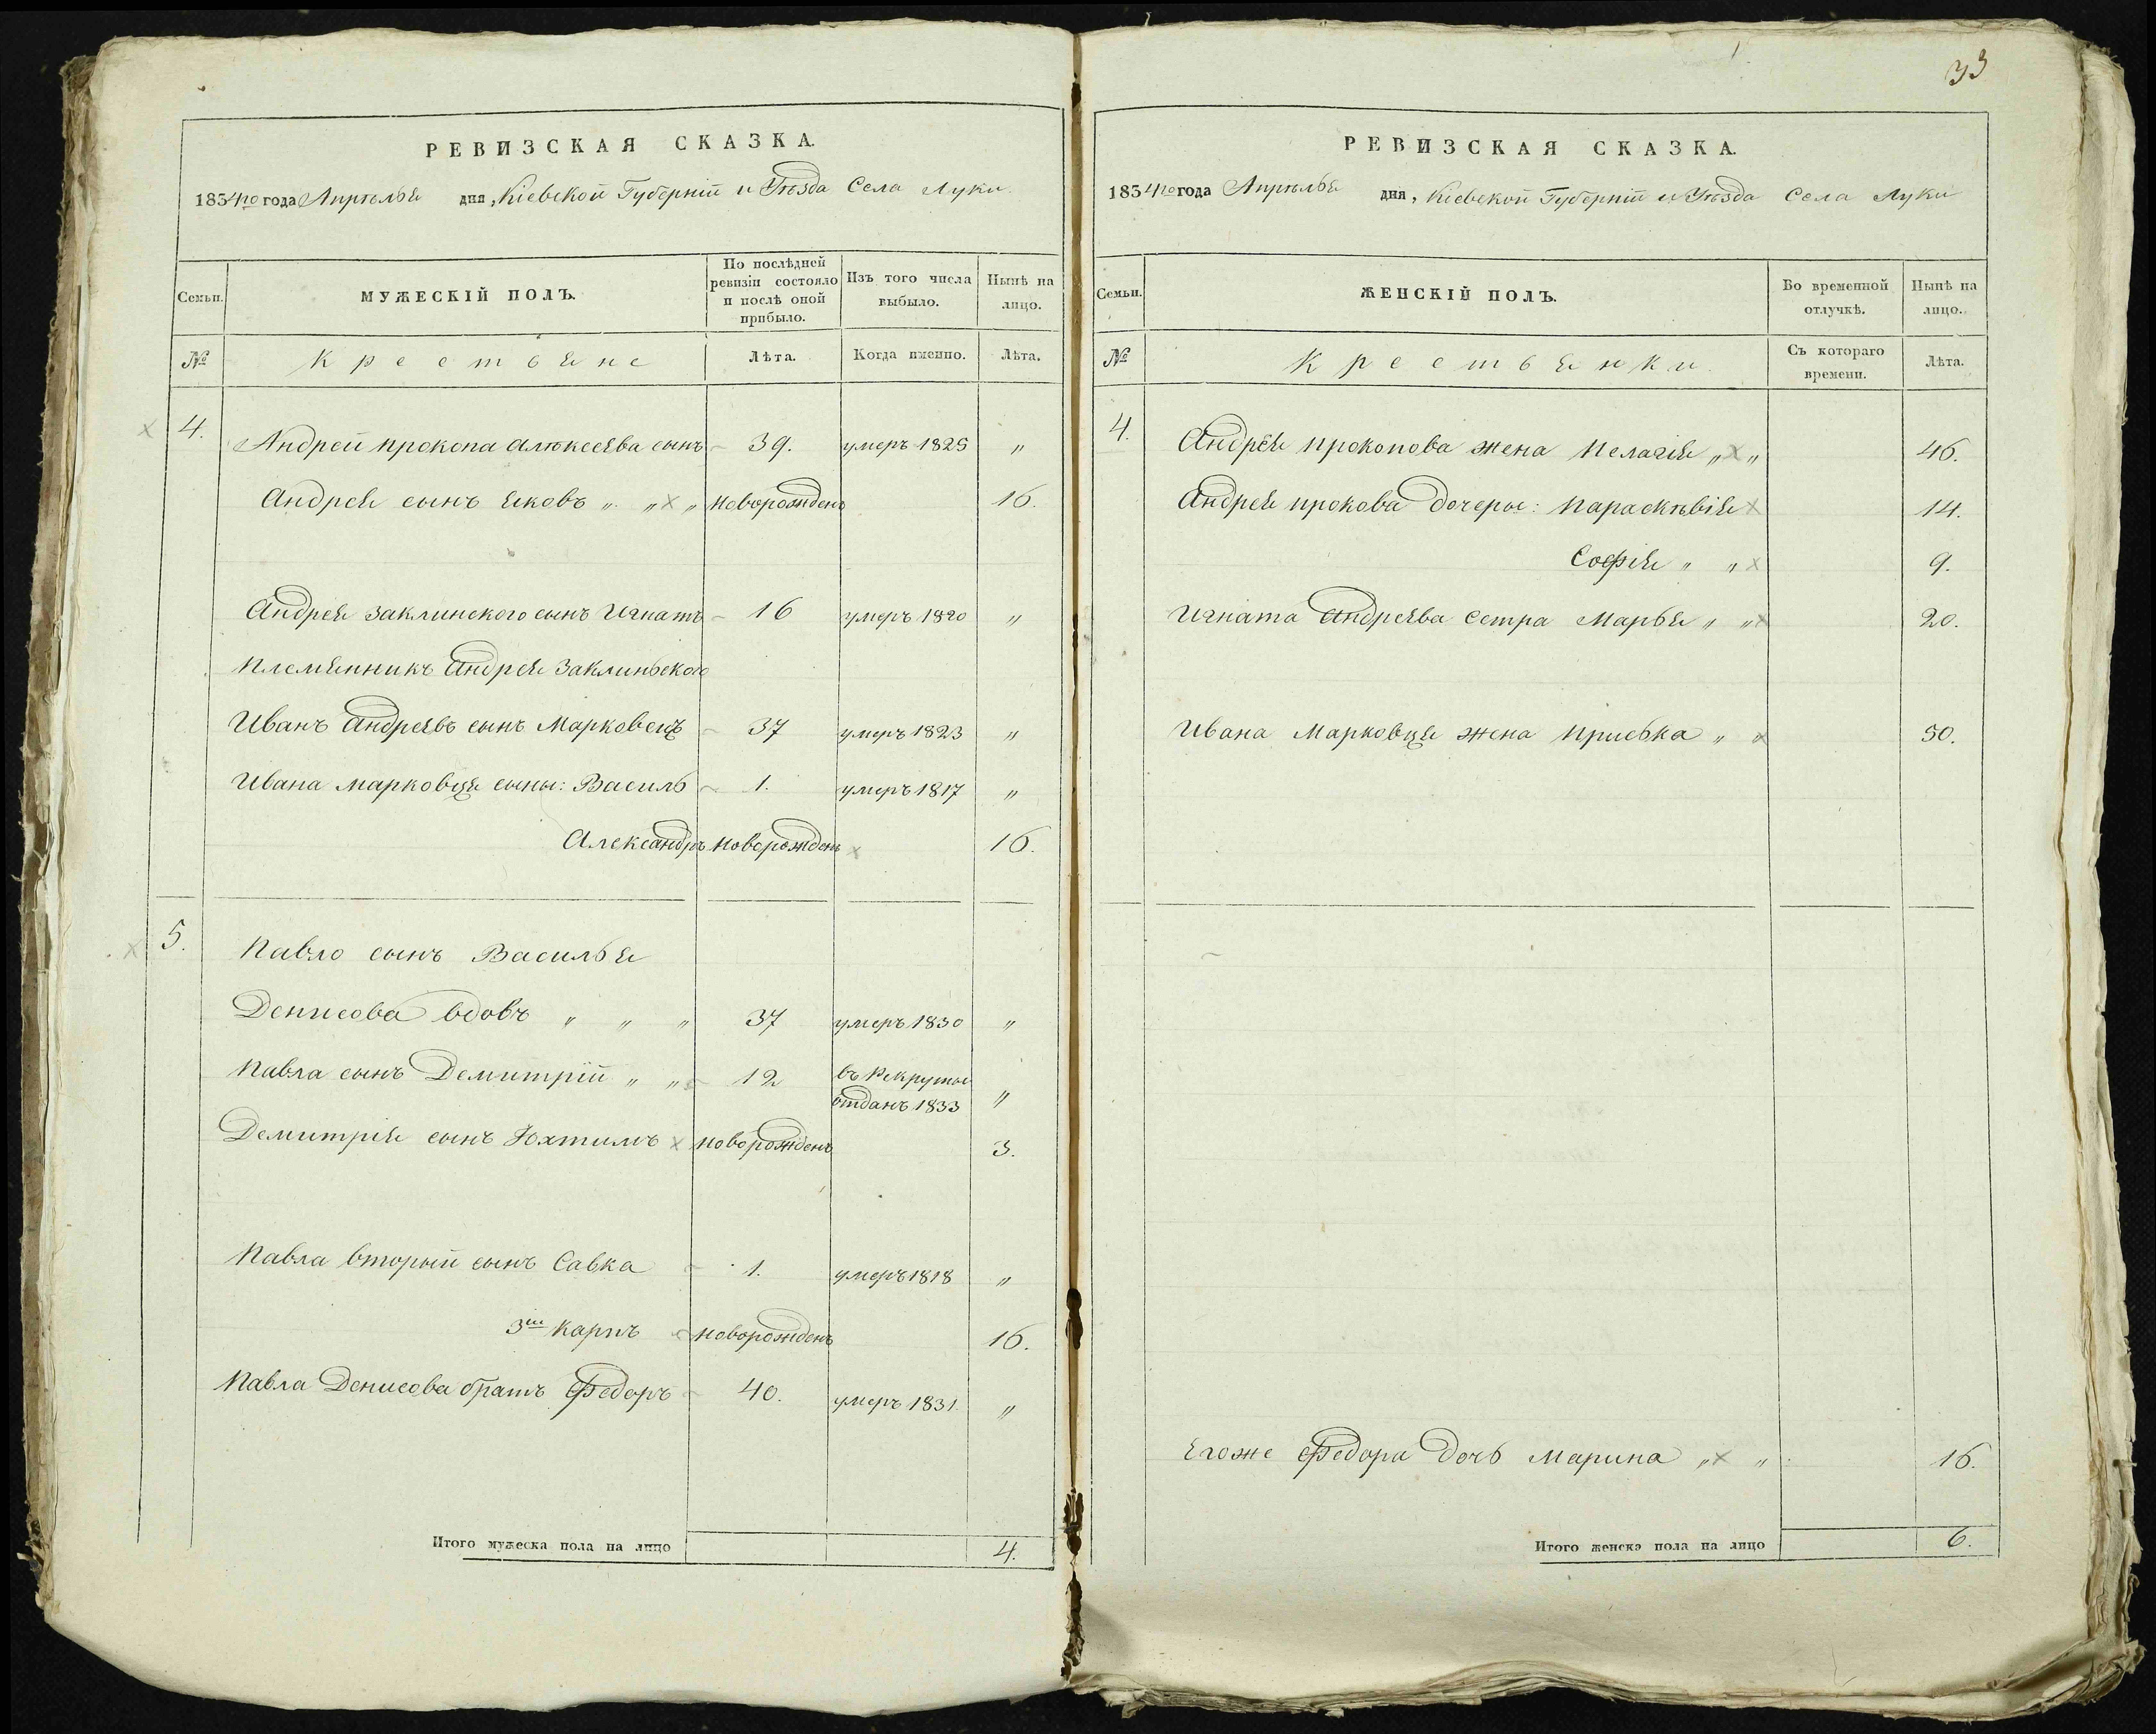 33
РЕВИЗСКАЯ СКАЗКА.
1834го года Апрѣля дня, Кіевской Губерніи и Уѣзда Села Луки
Семьи.
МУЖЕСКІЙ ПОЛЪ.
По послѣдней ревизіи состояло и послѣ оной прибыло.
Изъ того числа выбыло.
Нынѣ на лицо.
№
Крестьяне
Лѣта.
Когда именно.
Лѣта.
4. Андрей Прокопа Алюксеева сынъ 39. умеръ 1825 „
Андрея сынъ Яковъ „ „ „ новорожденъ 16.
Андрея Заклинского сынъ Игнатъ 16 умеръ 1820 „
Племянникъ Андрея Заклиньского
Иванъ Андреевъ сынъ Марковецъ 37 умеръ 1823 „
Ивана Марковця сыны: Василь 1. умеръ 1817 „
Александръ новорожденъ 16.
5. Павло сынъ Василья
Денисова вдовъ „ „ „ 37 умеръ 1830 „
Павла сынъ Демитрій „ „ 12 въ Рекруты
отданъ 1833 „
Демитрія сынъ Юхтимъ новорожденъ 3.
Павла вторый сынъ Савка 1. умеръ 1818 „
3ій Карпъ новорожденъ 16.
Павла Денисова братъ Федоръ 40. умеръ 1831. „
Итого мужеска пола на лицо 4.
РЕВИЗСКАЯ СКАЗКА.
1834го года Апрѣля дня, Кіевской Губерніи и Уѣзда Села Луки
Семьи.
ЖЕНСКІЙ ПОЛЪ.
Во временной отлучкѣ.
Нынѣ на лицо.
№
Крестьянки.
Съ котораго времени.
Лѣта.
4. Андрея Прокопова жена Пелагія „ „ 46.
Андрея Прокова дочеры: Параскѣвія 14.
Софія „ „ 9.
Игната Андреева сестра Марья „ „ 20.
Ивана Марковця жена Приська „ „ 50.
Егоже Федора дочь Марина „ „ 16.
Итого женска пола на лицо 6.